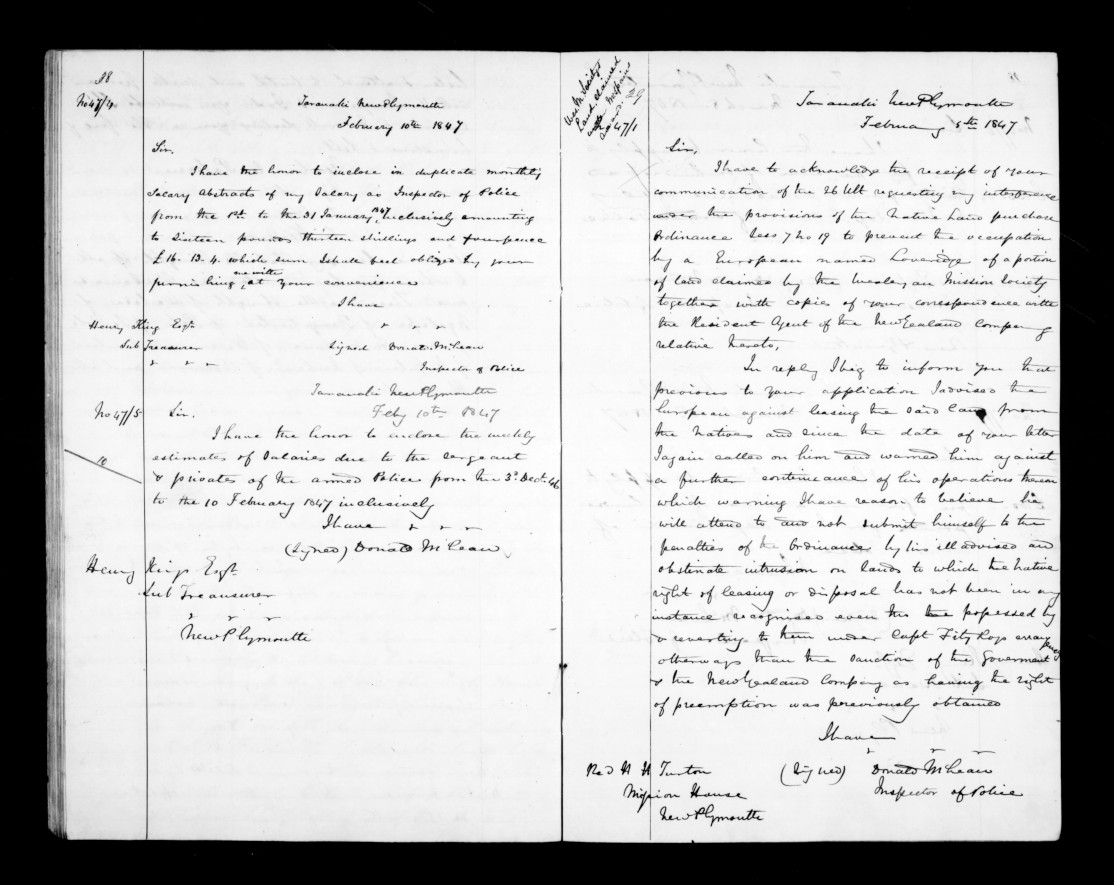 28
No 47/4
Taranaki New Plymouth
February 10th 1847
Sir,
I have the honor to inclose in duplicate monthly
Salary Abstracts of my Salary as Inspector of Police
from the 1st to the 31 January 1847, inclusively amounting
to Sixteen pounds thirteen shillings and fourpence
£16. 13. 4. which sum I shall feel obliged by your
furnishing me with at your convenience
I have
Henry King Esqre
Sub Treasurer
Signed Donald McLean
Inspector of Police
Taranaki New Plymouth
No 47/5
Sir.
Feby 10th 1847
I have the honor to enclose the weekly
estimates of Salaries due to the Sergeant
& privates of the armed Police from the 3d Decr 46
to the 10 February 1847 inclusively
I have
(Signed) Donald McLean
Henry Kings Esqr
Sub Treasurer
New Plymouth
Land claimed
29
47/1
Taranaki New Plymouth
February 8th 1847
Sir,
I have to acknowledge the receipt of your
communication of the 26 Ult requesting my interference
under the provisions of the Native Land purchase
Ordinance Sess 7 No 19 to prevent the occupation
by a European named Loveridge of a portion
of land claimed by the Wesleyan Mission Society
together with copies of your correspondence with
the Resident Agent of the New Zealand Company
relative hereto,
In reply I beg to inform you that
previous to your application I advised the
European against leasing the said land from
the Natives and since the date of your letter
I again called on him and warned him against
a further continuance of his operations thereon
which warning I have reason to believe he
will attend to and not submit himself to the
penalties of the Ordinance by his ill advised and
obstinate intrusion on lands to which the native
right of leasing or disposal has not been in any
instance recognised even tho the possessed by
& reverting to them under Capt Fitz Roys
otherways than the sanction of the Goverment
& the New Zealand Company as having the right
of preemption was previously obtained
I have
Red H H Turton
Mission House
New Plymouth
(Signed) Donald McLean
Inspector of Police